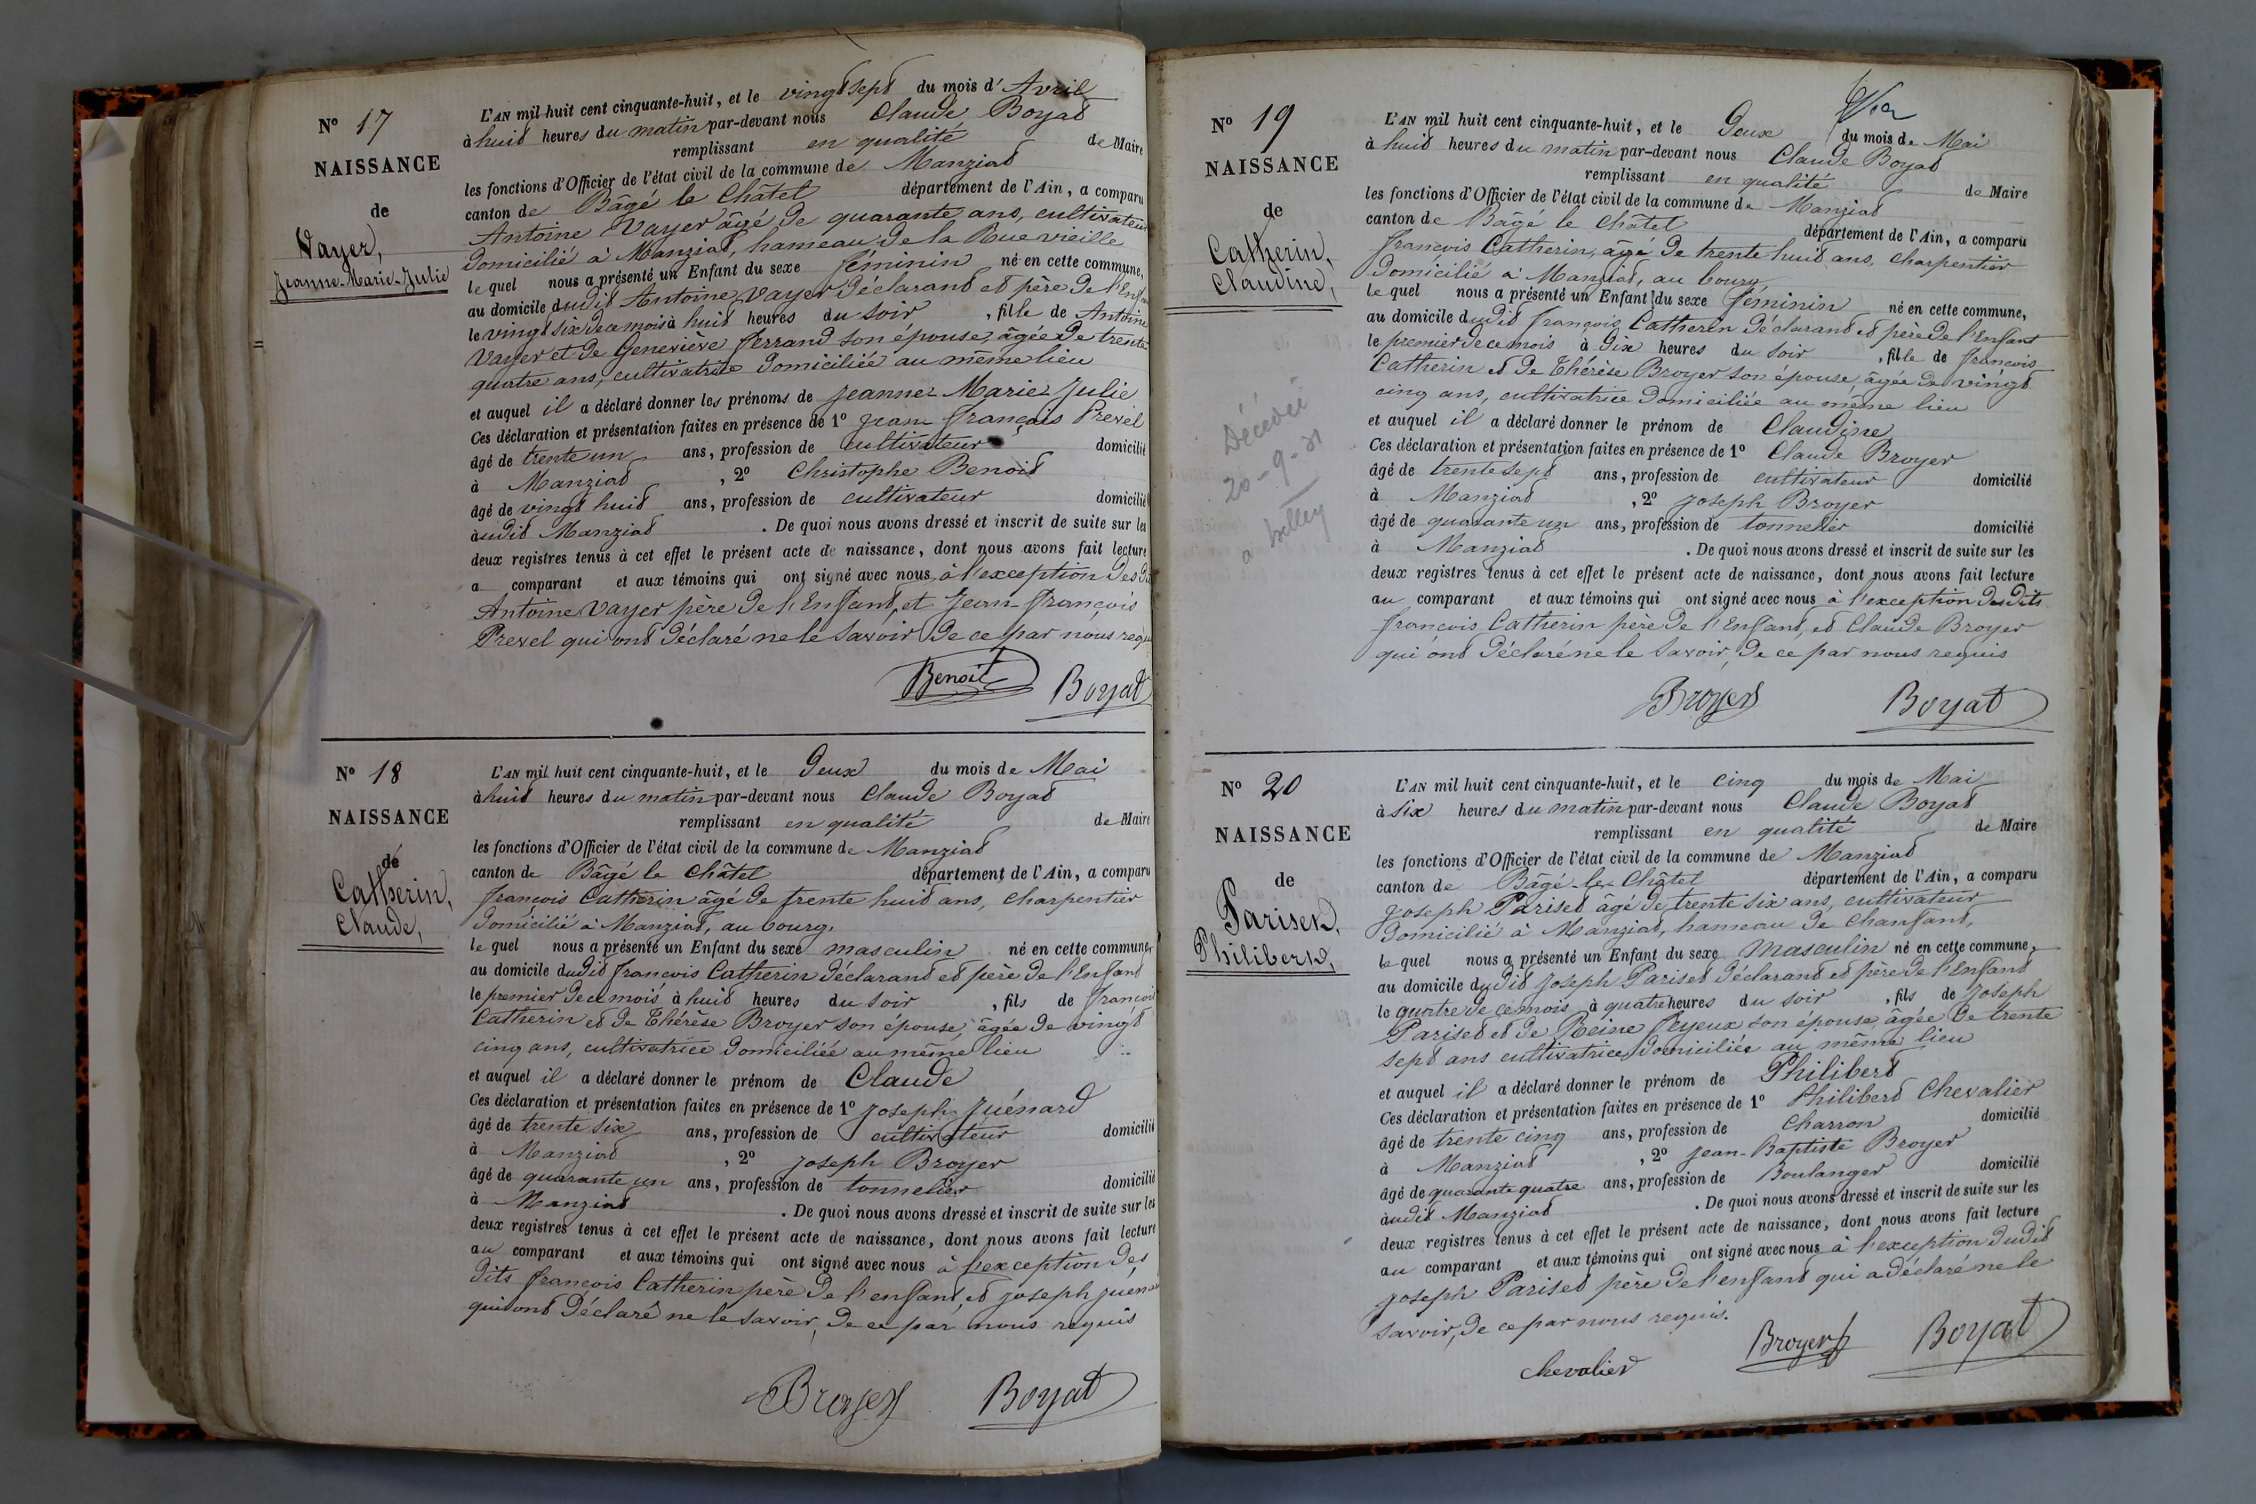 N° 17
NAISSANCE
de
Vayer,
Jeanne-Marie-Julie
L'AN mil huit cent cinquante-huit, et le vingt sept du mois d'Avril
à huit heures du matin par-devant nous Claude Boyat
remplissant en qualité de Maire
les fonctions d'Officier de l'état civil de la commune de Manziat
canton de Bâgé le Châtel département de l'Ain, a comparu
Antoine Vayer âgé de quarante ans, cultivateur
domicilié à Manziat, hameau de la Rue vieille
le quel nous a présenté un Enfant du sexe féminin né en cette commune,
au domicile dudit Antoine Vayer déclarant et père de l'Enfant
le vingt six de ce mois à huit heures du soir, fille de Antoine
Vayer et de Geneviève Ferrand son épouse, âgée de trente
quatre ans, cultivatrice domiciliée au même lieu
et auquel il a déclaré donner les prénoms de Jeanne Marie Julie
Ces déclaration et présentation faites en présence de 1° Jean François Prevel
âgé de trente un ans, profession de cultivateur domicilié
à Manziat, 2° Christophe Benoit
âgé de vingt huit ans, profession de cultivateur domicilié
àudit Manziat. De quoi nous avons dressé et inscrit de suite sur les
deux registres tenus à cet effet le présent acte de naissance, dont nous avons fait lecture
a comparant et aux témoins qui ont signé avec nous à l'exception des dit
Antoine Vayer père de l'Enfant, et Jean-François
Prevel qui ont déclaré ne le savoir de ce par nous requ
Benoit Boyat
N° 18
NAISSANCE
de
Catherin,
Claude,
L'AN mil huit cent cinquante-huit, et le deux du mois de Mai
à huit heures du matin par-devant nous Claude Boyat
remplissant en qualité de Maire
les fonctions d'Officier de l'état civil de la commune de Manziat
canton de Bâgé le Châtel département de l'Ain, a comparu
François Catherin âgé de trente huit ans, charpentier
domicilié à Manziat, au bourg,
le quel nous a présenté un Enfant du sexe masculin né en cette commune,
au domicile dudit François Catherin déclarant et père de l'Enfant
le premier de ce mois à huit heures du soir, fils de François
Catherin et de Thérèse Broyer son épouse, âgée de vingt
cinq ans, cultivatrice domiciliée au même lieu
et auquel il a déclaré donner le prénom de Claude
Ces déclaration et présentation faites en présence de 1° Joseph Juénard
âgé de trente six ans, profession de cultivateur domicilié
à Manziat, 2° Joseph Broyer
âgé de quarante un ans, profession de tonnelier domicilié
à Manziat. De quoi nous avons dressé et inscrit de suite sur les
deux registres tenus à cet effet le présent acte de naissance, dont nous avons fait lecture
au comparant et aux témoins qui ont signé avec nous à l'exception des
dits François Catherin père de l'enfant, et Joseph Juéna
qui ont déclaré ne le savoir, de ce par nous requis
Broyer Boyat
N° 19
NAISSANCE
de
Catherin,
Claudine,
Décédée
20-9-31
a
L'AN mil huit cent cinquante-huit, et le deux du mois de Mai
à huit heures du matin par-devant nous Claude Boyat
remplissant en qualité de Maire
les fonctions d'Officier de l'état civil de la commune de Manziat
canton de Bâgé le Châtel département de l'Ain, a comparu
François Catherin, âgé de trente huit ans, charpentier
domicilié à Manziat, au bourg
le quel nous a présenté un Enfant du sexe féminin né en cette commune,
au domicile dudit François Catherin déclarant et père de l'Enfant
le premier de ce mois à dix heures du soir, fille de François
Catherin et de Thérèse Broyer son épouse, âgée de vingt
cinq ans, cultivatrice domiciliée au même lieu
et auquel il a déclaré donner le prénom de Claudine
Ces déclaration et présentation faites en présence de 1° Claude Broyer
âgé de trente sept ans, profession de cultivateur domicilié
à Manziat, 2° Joseph Broyer
âgé de quarante un ans, profession de tonnelier domicilié
à Manziat. De quoi nous avons dressé et inscrit de suite sur les
deux registres tenus à cet effet le présent acte de naissance, dont nous avons fait lecture
au comparant et aux témoins qui ont signé avec nous à l'exception des dits
François Catherin père de l'Enfant, et Claude Broyer
qui ont déclaré ne le savoir, de ce par nous requis
Broyer Boyat
N° 20
NAISSANCE
de
Pariset,
Philibert,
L'AN mil huit cent cinquante-huit, et le cinq du mois de Mai
à six heures du matin par-devant nous Claude Boyat
remplissant en qualité de Maire
les fonctions d'Officier de l'état civil de la commune de Manziat
canton de Bâgé-le-Châtel département de l'Ain, a comparu
Joseph Pariset âgé de trente six ans, cultivateur
domicilié à Manziat, hameau de Chanfant,
le quel nous a présenté un Enfant du sexe masculin né en cette commune,
au domicile dudit Joseph Pariset déclarant et père de l'Enfant
le quatre de ce mois à quatre heures du soir, fils de Joseph
Pariset et de Reine Peyeux son épouse, âgée de trente
sept ans cultivatrice domiciliée au même lieu
et auquel il a déclaré donner le prénom de Philibert
Ces déclaration et présentation faites en présence de 1° Philibert Chevalier
âgé de trente cinq ans, profession de charron domicilié
à Manziat, 2° Jean-Baptiste Broyer
âgé de quarante quatre ans, profession de Boulanger domicilié
àudit Manziat. De quoi nous avons dressé et inscrit de suite sur les
deux registres tenus à cet effet le présent acte de naissance, dont nous avons fait lecture
au comparant et aux témoins qui ont signé avec nous à l'exception dudit
Joseph Pariset père de l'enfant qui a déclaré ne le
savoir, de ce par nous requis.
Chevalier Broyer Boyat